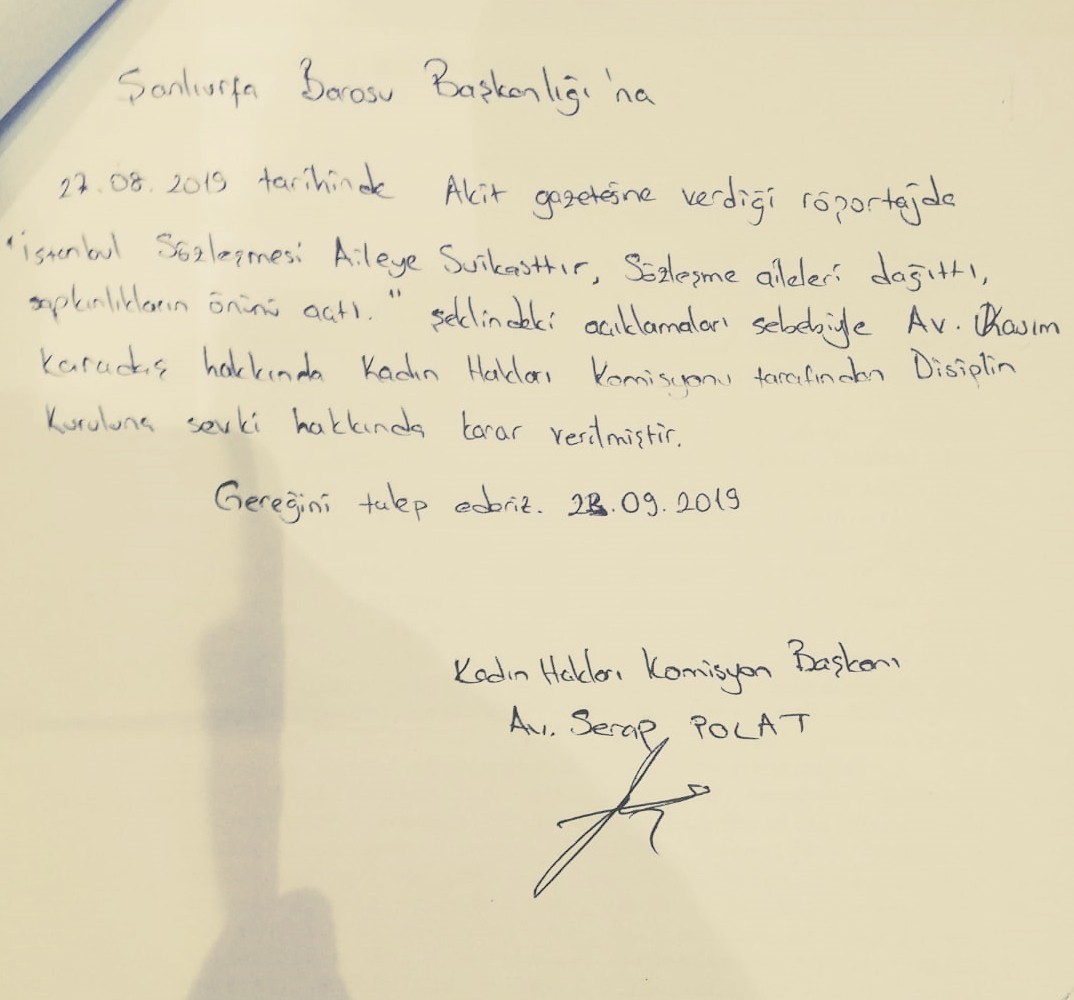 Şanlıurfa Barosu Başkanlığı'na
27.08.2019 tarihinde Akit gazetesine verdiği röportajda
"İstanbul Sözleşmesi Aileye Suikasttır, Sözleşme aileleri dağıttı,
sapkınlıkların önünü açtı." şeklindeki açıklamaları sebebiyle Av. Kasım
Karadaş hakkında Kadın Hakları Komisyonu tarafından Disiplin
Kuruluna sevki hakkında karar verilmiştir.
Gereğini talep ederiz. .09.2019
Kadın Hakları Komisyon Başkanı
Av. Serap POLAT